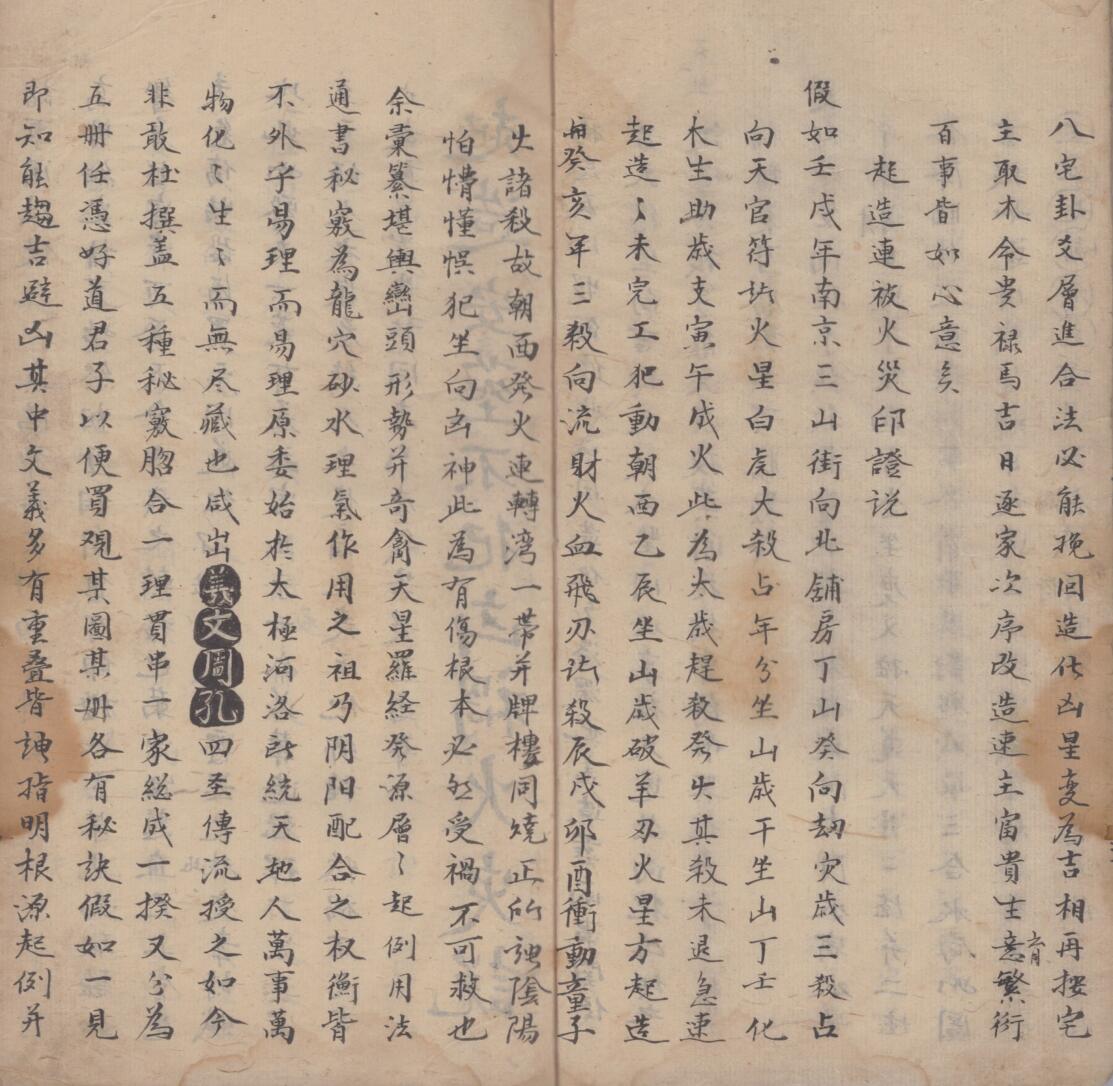 八宅卦爻層進合法必能挽回造化凶星变為吉相再按宅
主取木命贵禄馬吉日逐家次序改造速主富貴生意繁衍
六月
百事皆如心意矣
起造連被火災印證说
假如壬戌年南京三山街向北舖房丁山癸向刼灾歳三殺占
向天官符計火星白虎大殺占年分坐山歳干坐山丁壬化
木生助歳支寅午戌火此為太歳趕殺發火其殺未退急速
起造〻未完工犯動朝西乙辰坐山歳破羊刃火星方起造
再癸亥年三殺向流財火血飛刃計殺辰戌卯酉衝動童子
火諸殺故朝西發火連轉湾一帶并牌樓同燒正所謂陰陽
怕懵懂悮犯坐向凶神此為有傷根本必然受禍不可救也
余彙纂堪輿巒頭形勢并奇禽天星羅経發源層〻起例用法
通書秘竅為龍穴砂水理氣作用之祖乃阴阳配合之权衡皆
不外乎易理而易理原委始於太極河洛所統天地人萬事萬
物化〻生〻而無尽藏也咸出羲文周孔四圣傳流授之如今
非敢杜撰盖五種秘竅脗合一理貫串一家総成一揆又分為
五册任憑好道君子以便買覌某圖某册各有秘訣假如一見
即知能趨吉避凶其中文義多有重叠皆諌指明根源起例并